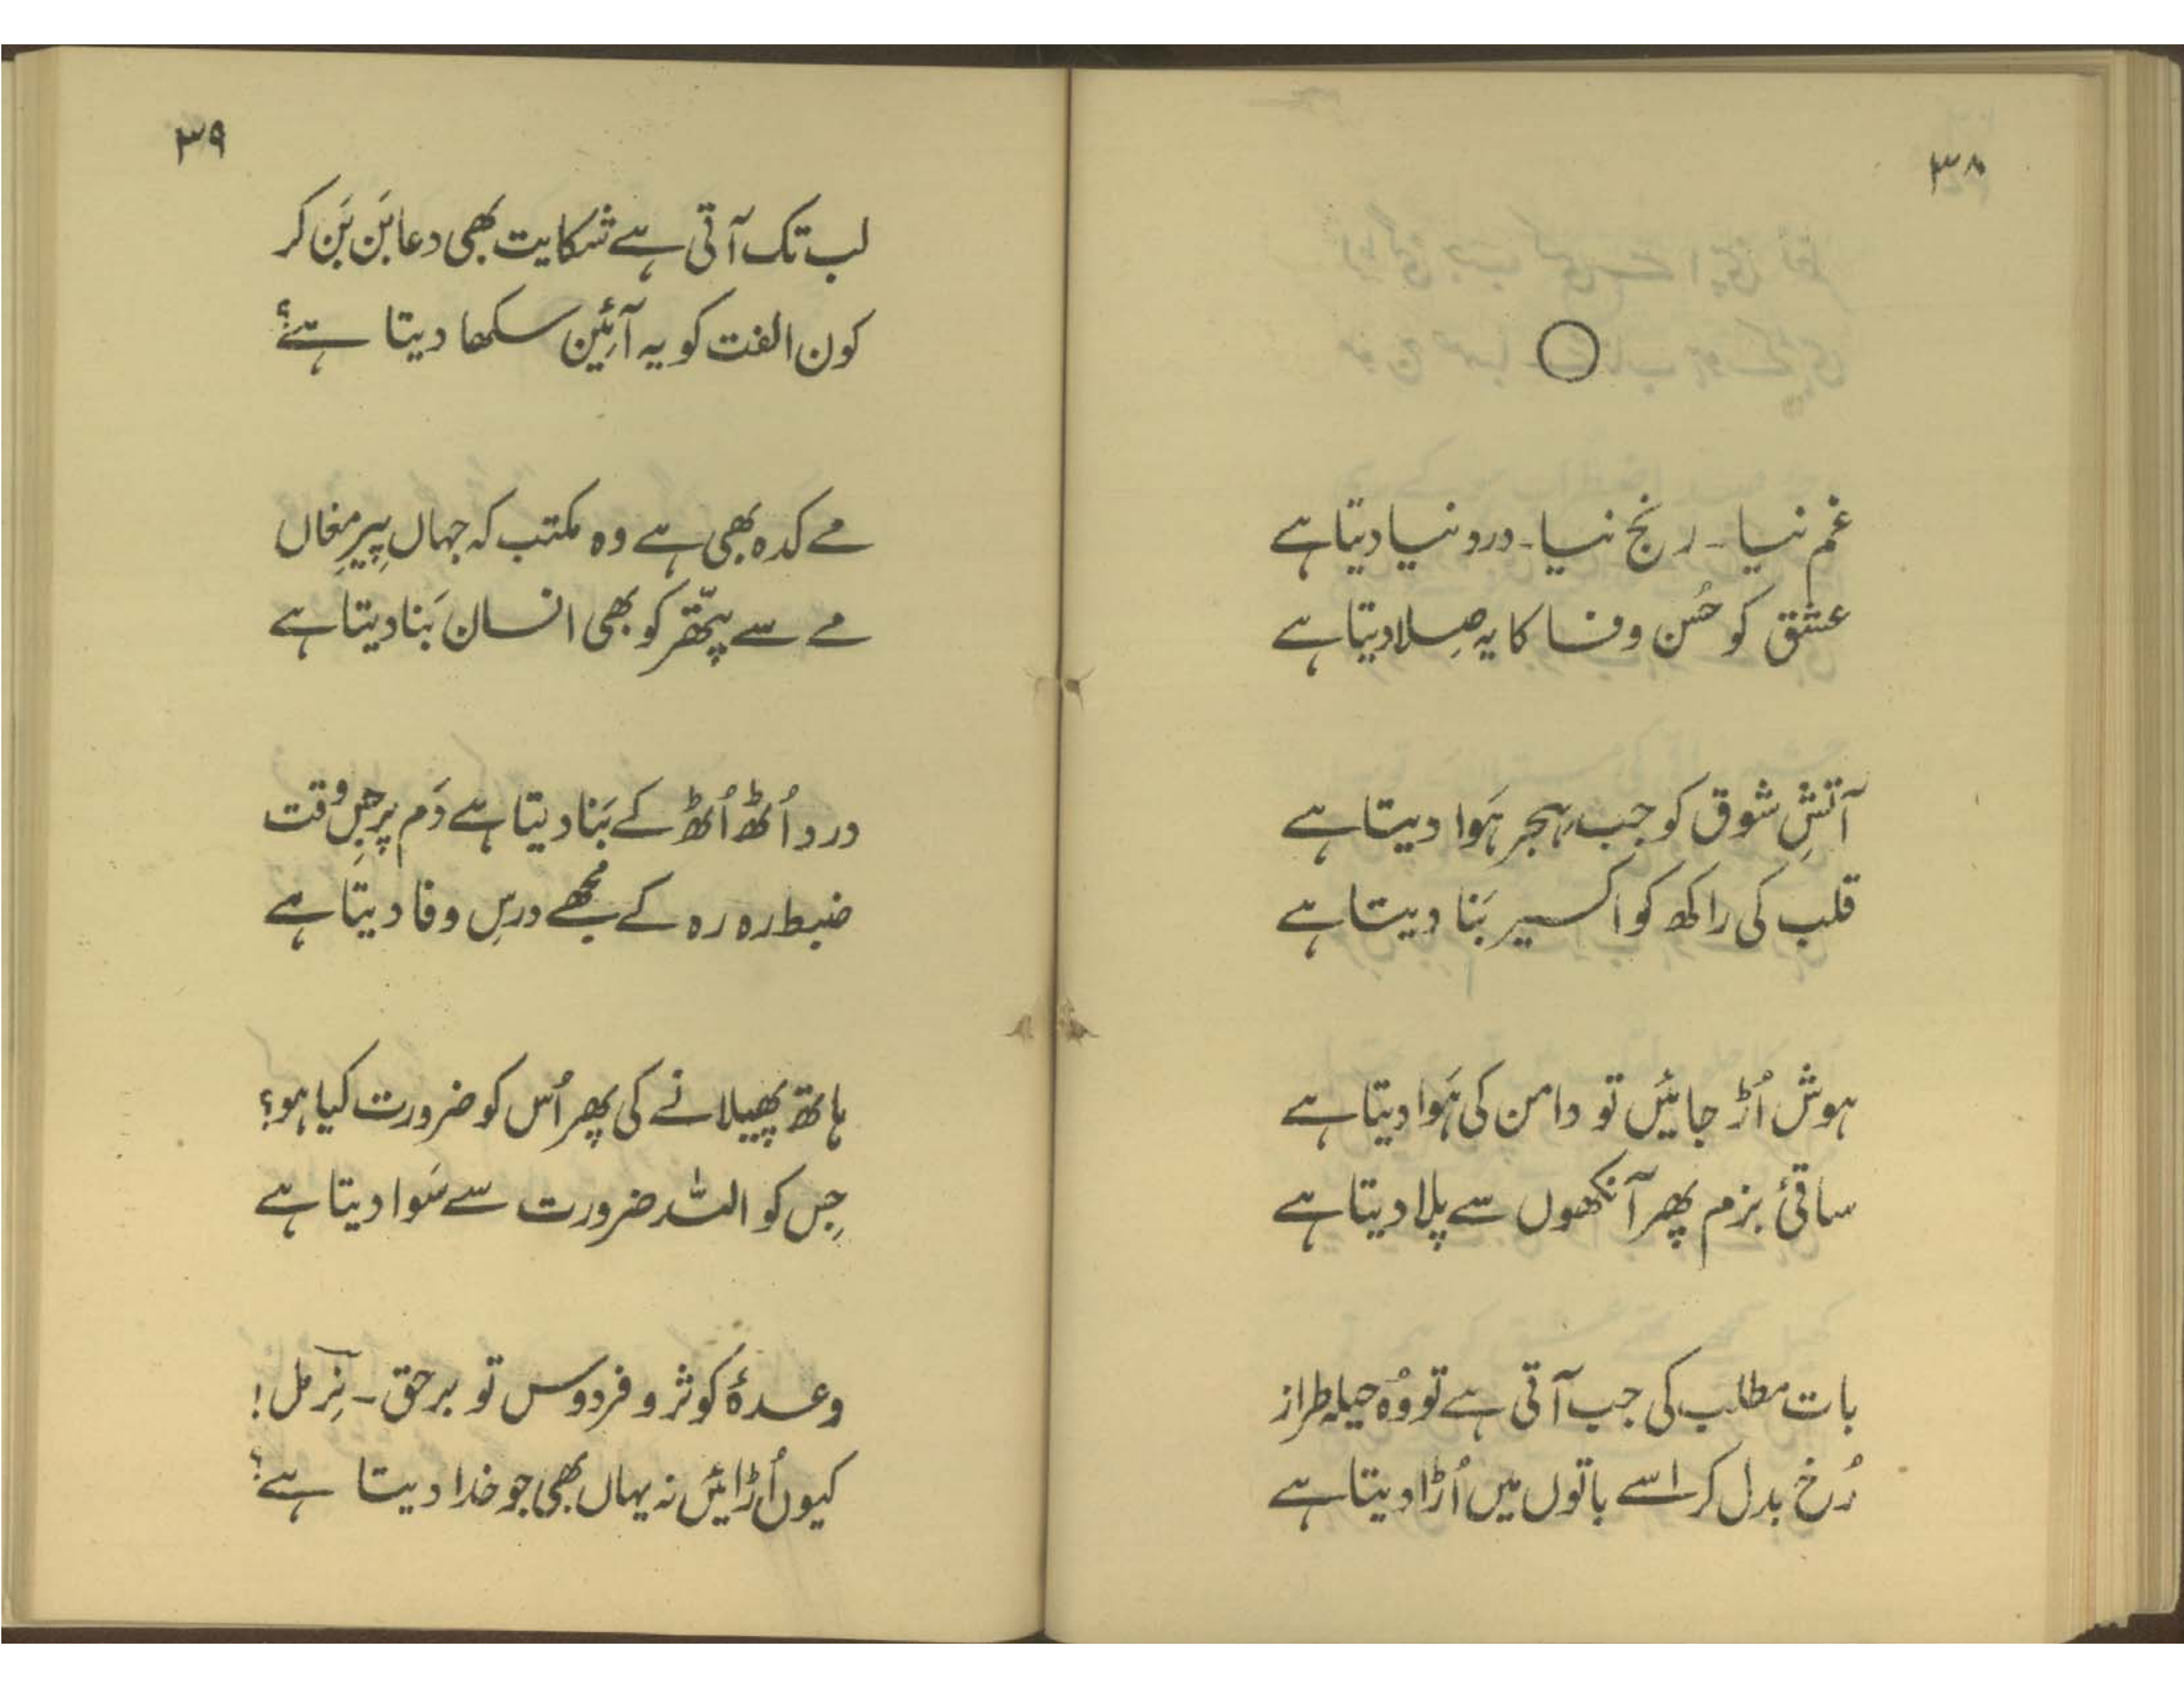 ۳۸
غم نیا ۔ رنج نیا ۔ درد نیا دیتا ہے
عشق کو حُسن وفا کا یہ صِلا دیتا ہے
آتشِ شوق کو جب ہجر ہَوا دیتا ہے
قلب کی راکھ کو اکسیر بَنا دیتا ہے
ہوش اُڑ جائیں تو دامن کی ہَوا دیتا ہے
ساقیٔ بزم پھر آنکھوں سے پلا دیتا ہے
بات مطلب کی جب آتی ہے تو وُہ حیلہ طراز
رُخ بدل کر اسے باتوں میں اُڑا دیتا ہے
۳۹
لب تک آتی ہے شکایت بھی دعا بَن بَن کر
کون الفت کو یہ آئین سکھا دیتا ہے؟
مے کدہ بھی ہے وہ مکتب کہ جہاں پیرِ مغاں
مے سے پتّھر کو بھی انسان بَنا دیتا ہے
درد اُٹھ اُٹھ کے بَنا دیتا ہے دَم پر جِس وقت
ضبط رہ رہ کے مُجھے درسِ وفا دیتا ہے
ہاتھ پھیلانے کی پھر اُس کو ضرورت کیا ہو؟
جِس کو اللہ ضرورت سے سَوا دیتا ہے
وعدۂ کوثر و فردوس تو برحق ۔ نِرمل!
کیوں اُڑائیں نہ یہاں بھی جو خدا دیتا ہے؟